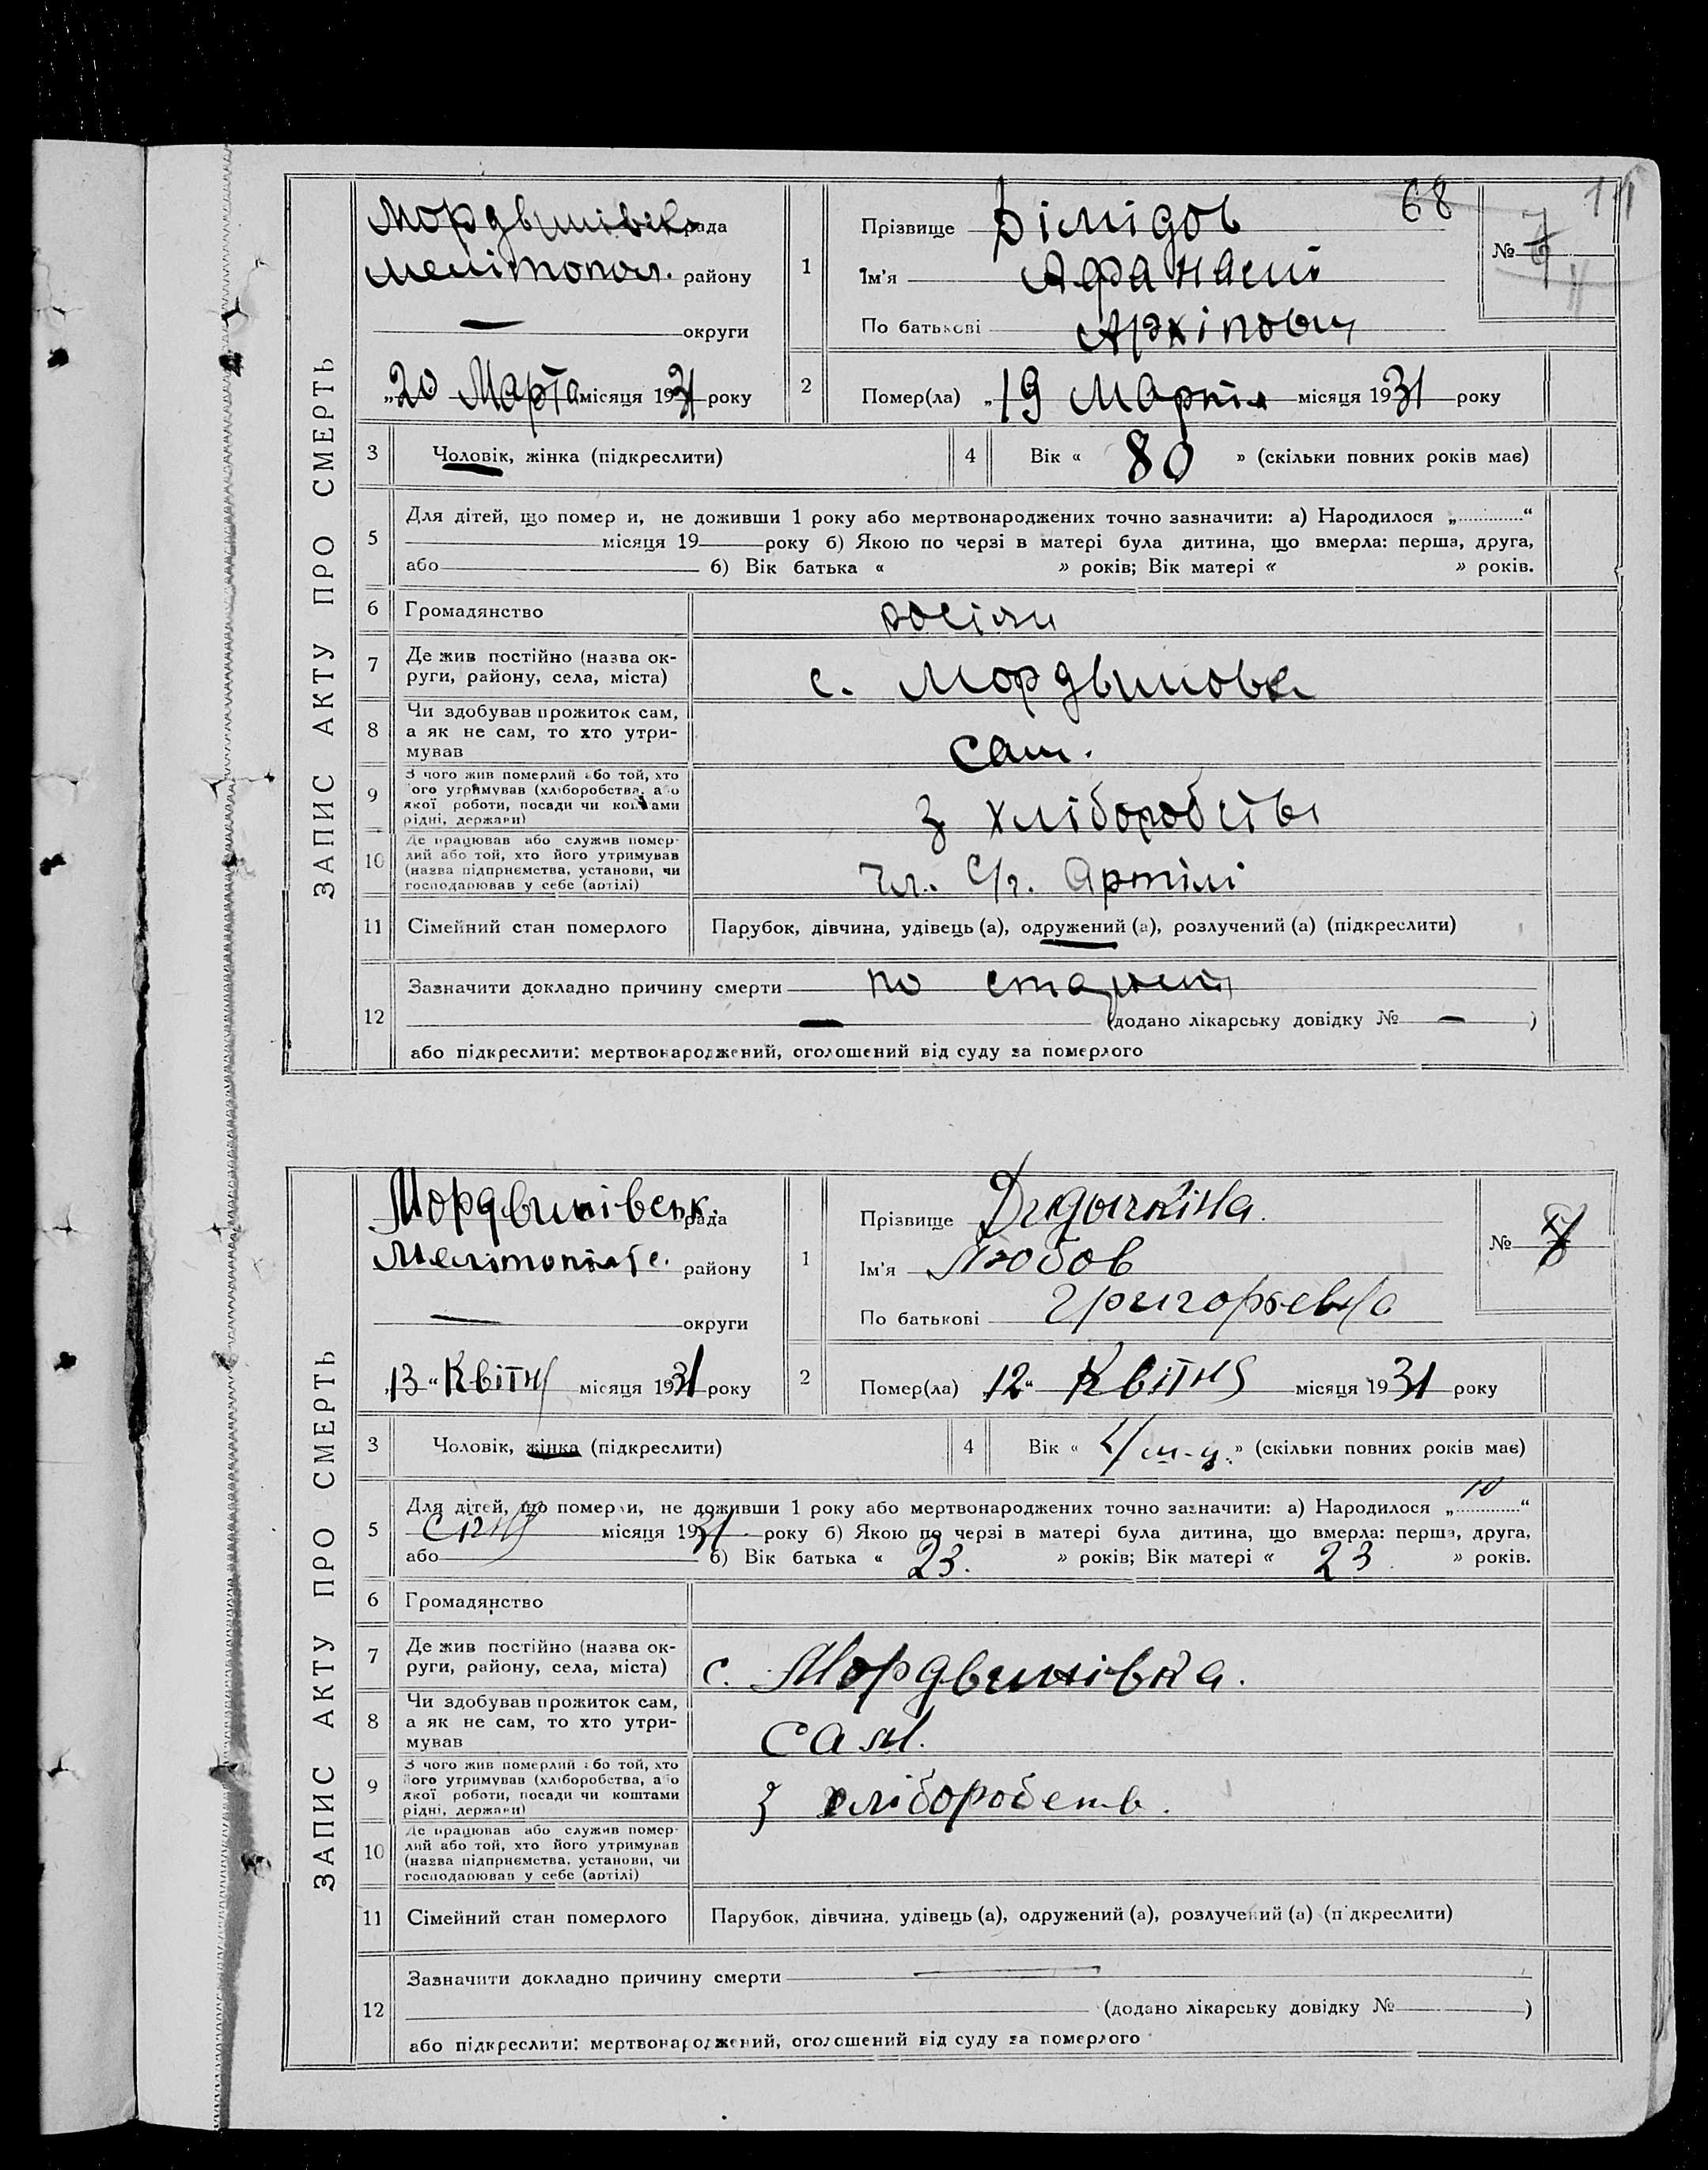 68
ЗАПИС АКТУ ПРО СМЕРТЬ
Мордвинівськ рада
Мелітопол. району
— округи
„20 Марта місяця 1931 року
1
Прізвище Дімідов
Ім'я Афанасий
По батькові Архіпович
№
2
Помер(ла) „19 Марта місяця 1931 року
3 Чоловік, жінка (підкреслити)
4 Вік « 80 » (скільки повних років має)
5
Для дітей, що помер и, не доживши 1 року або мертвонароджених точно зазначити: а) Народилося „ “
місяця 19 року б) Якою по черзі в матері була дитина, що вмерла: перша, друга,
або б) Вік батька « » років; Вік матері « » років.
6 Громадянство
7 Де жив постійно (назва ок-
руги, району, села, міста)
с. Мордвиновка
8 Чи здобував прожиток сам,
а як не сам, то хто утри-
мував
сам.
9 З чого жив померлий або той, хто
його утримував (хліборобства, або
якої роботи, посади чи коштами
рідні, держави)
з хліборобства
10 Де працював або служив помер-
лий або той, хто його утримував
(назва підприємства, установи, чи
господарював у себе (артілі)
Чл. С/г. Артілі
11 Сімейний стан померлого
Парубок, дівчина, удівець (а), одружений (а), розлучений (а) (підкреслити)
12
Зазначити докладно причину смерти по старости
— (додано лікарську довідку № — )
або підкреслити: мертвонароджений, оголошений від суду за померлого
ЗАПИС АКТУ ПРО СМЕРТЬ
Мордвинівськ. рада
Мелітопільс. району
— округи
„13“ Квітня місяця 1931 року
1
Прізвище Дидычкіна.
Ім'я Любов
По батькові Григорьевна
№
2
Помер(ла) „12“ Квітня місяця 1931 року
3 Чоловік, жінка (підкреслити)
4 Вік « 4 м-ц. » (скільки повних років має)
5
Для дітей, що померли, не доживши 1 року або мертвонароджених точно зазначити: а) Народилося „10“
Січня місяця 1931 року б) Якою по черзі в матері була дитина, що вмерла: перша, друга,
або б) Вік батька « 23. » років; Вік матері « 23 » років.
6 Громадянство
7 Де жив постійно (назва ок-
руги, району, села, міста)
с. Мордвинівка.
8 Чи здобував прожиток сам,
а як не сам, то хто утри-
мував
сам.
9 З чого жив померлий або той, хто
його утримував (хліборобства, або
якої роботи, посади чи коштами
рідні, держави)
з хліборобств.
10 Де працював або служив помер-
лий або той, хто його утримував
(назва підприємства, установи, чи
господарював у себе (артілі)
11 Сімейний стан померлого
Парубок, дівчина, удівець (а), одружений (а), розлучений (а) (підкреслити)
12
Зазначити докладно причину смерти —
(додано лікарську довідку № )
або підкреслити: мертвонароджений, оголошений від суду за померлого